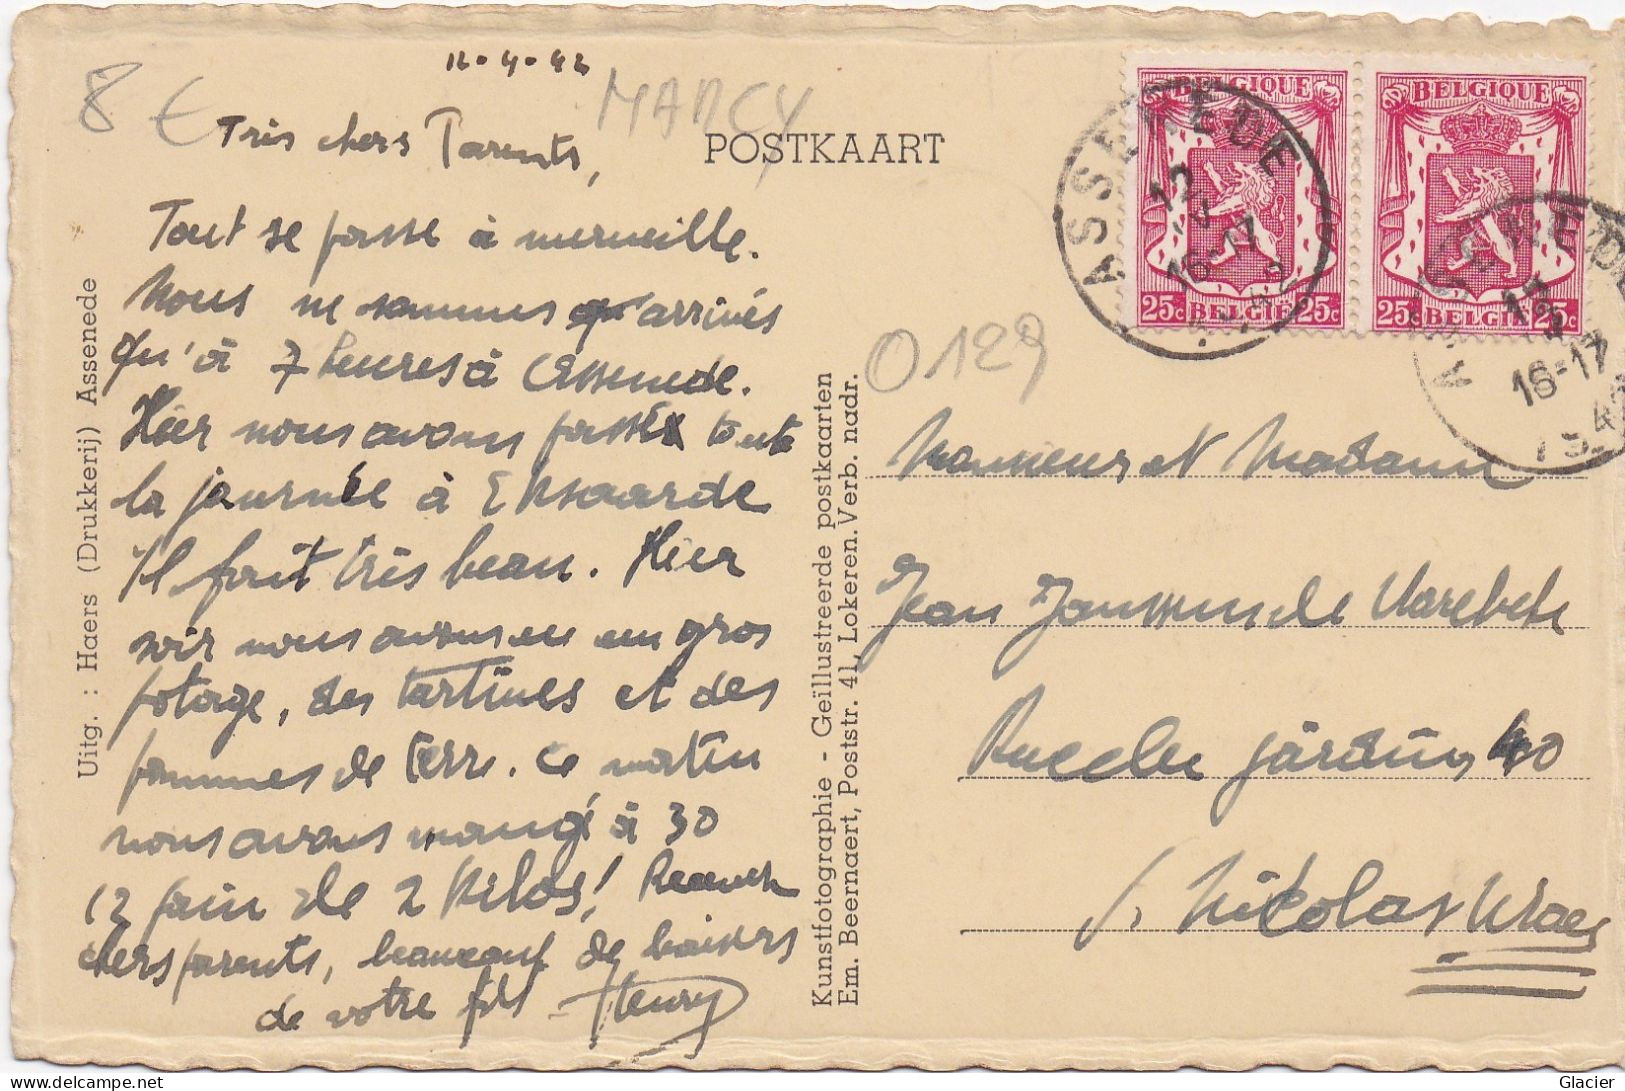 12-4-42
8 €
MARCY
Très chers Parents,
POSTKAART
Tout se passe à merveille.
Nous ne sommes arrivés
qu'à 7 heures à Assenede.
Hier nous avons passé toute
la journée à Eksaarde
Il fait très beau. Hier
soir nous avons eu un gros
potage, des tartines et des
pommes de terre. Ce matin
nous avons mangé à 30
12 pain de 2 kilos! Recevez
chers parents, beaucoup de baisers
de votre fils Henry
Uitg. : Haers (Drukkerij) Assenede
Kunstfotographie - Geïllustreerde postkaarten
Em. Beernaert, Poststr. 41, Lokeren. Verb. nadr.
BELGIQUE
25c BELGIE 25c
BELGIQUE
25c BELGIE 25c
ASSENEDE
12
V
16-17
42
ASSENEDE
12
V
16-17
1942
0129
Monsieur et Madame
Jean Janssens de Varebeke
Rue des jardins 40
St Nicolas Waes
Delcampe.net
Glacier